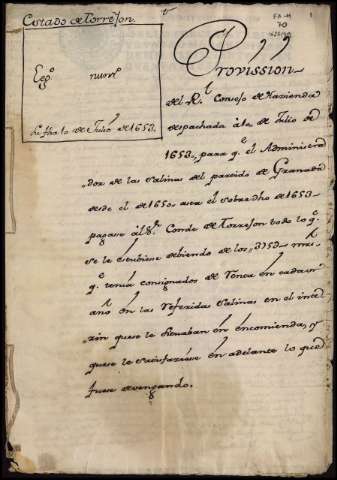 Estado de Torrejon.
FA-M
70
1
Provission
Leg.º num.º
su fha 16 de Julio de 1653.
del R.l Consejo de Hazienda
despachada á 16 de Julio de
1653, para q.e el Administra
dor de las Salinas del partido de Granada
desde el de 1650 asta el sobredho de 1653
pagase al S.r Conde de Torrejon todo lo q.e
se le estubiese debiendo de los
q.e tenia consignados de Renta en cada un
año en las referidas Salinas en el inte
rin que se le situaban en encomienda, y
que se le satisfaziese en adelante lo que
fuese devengando.